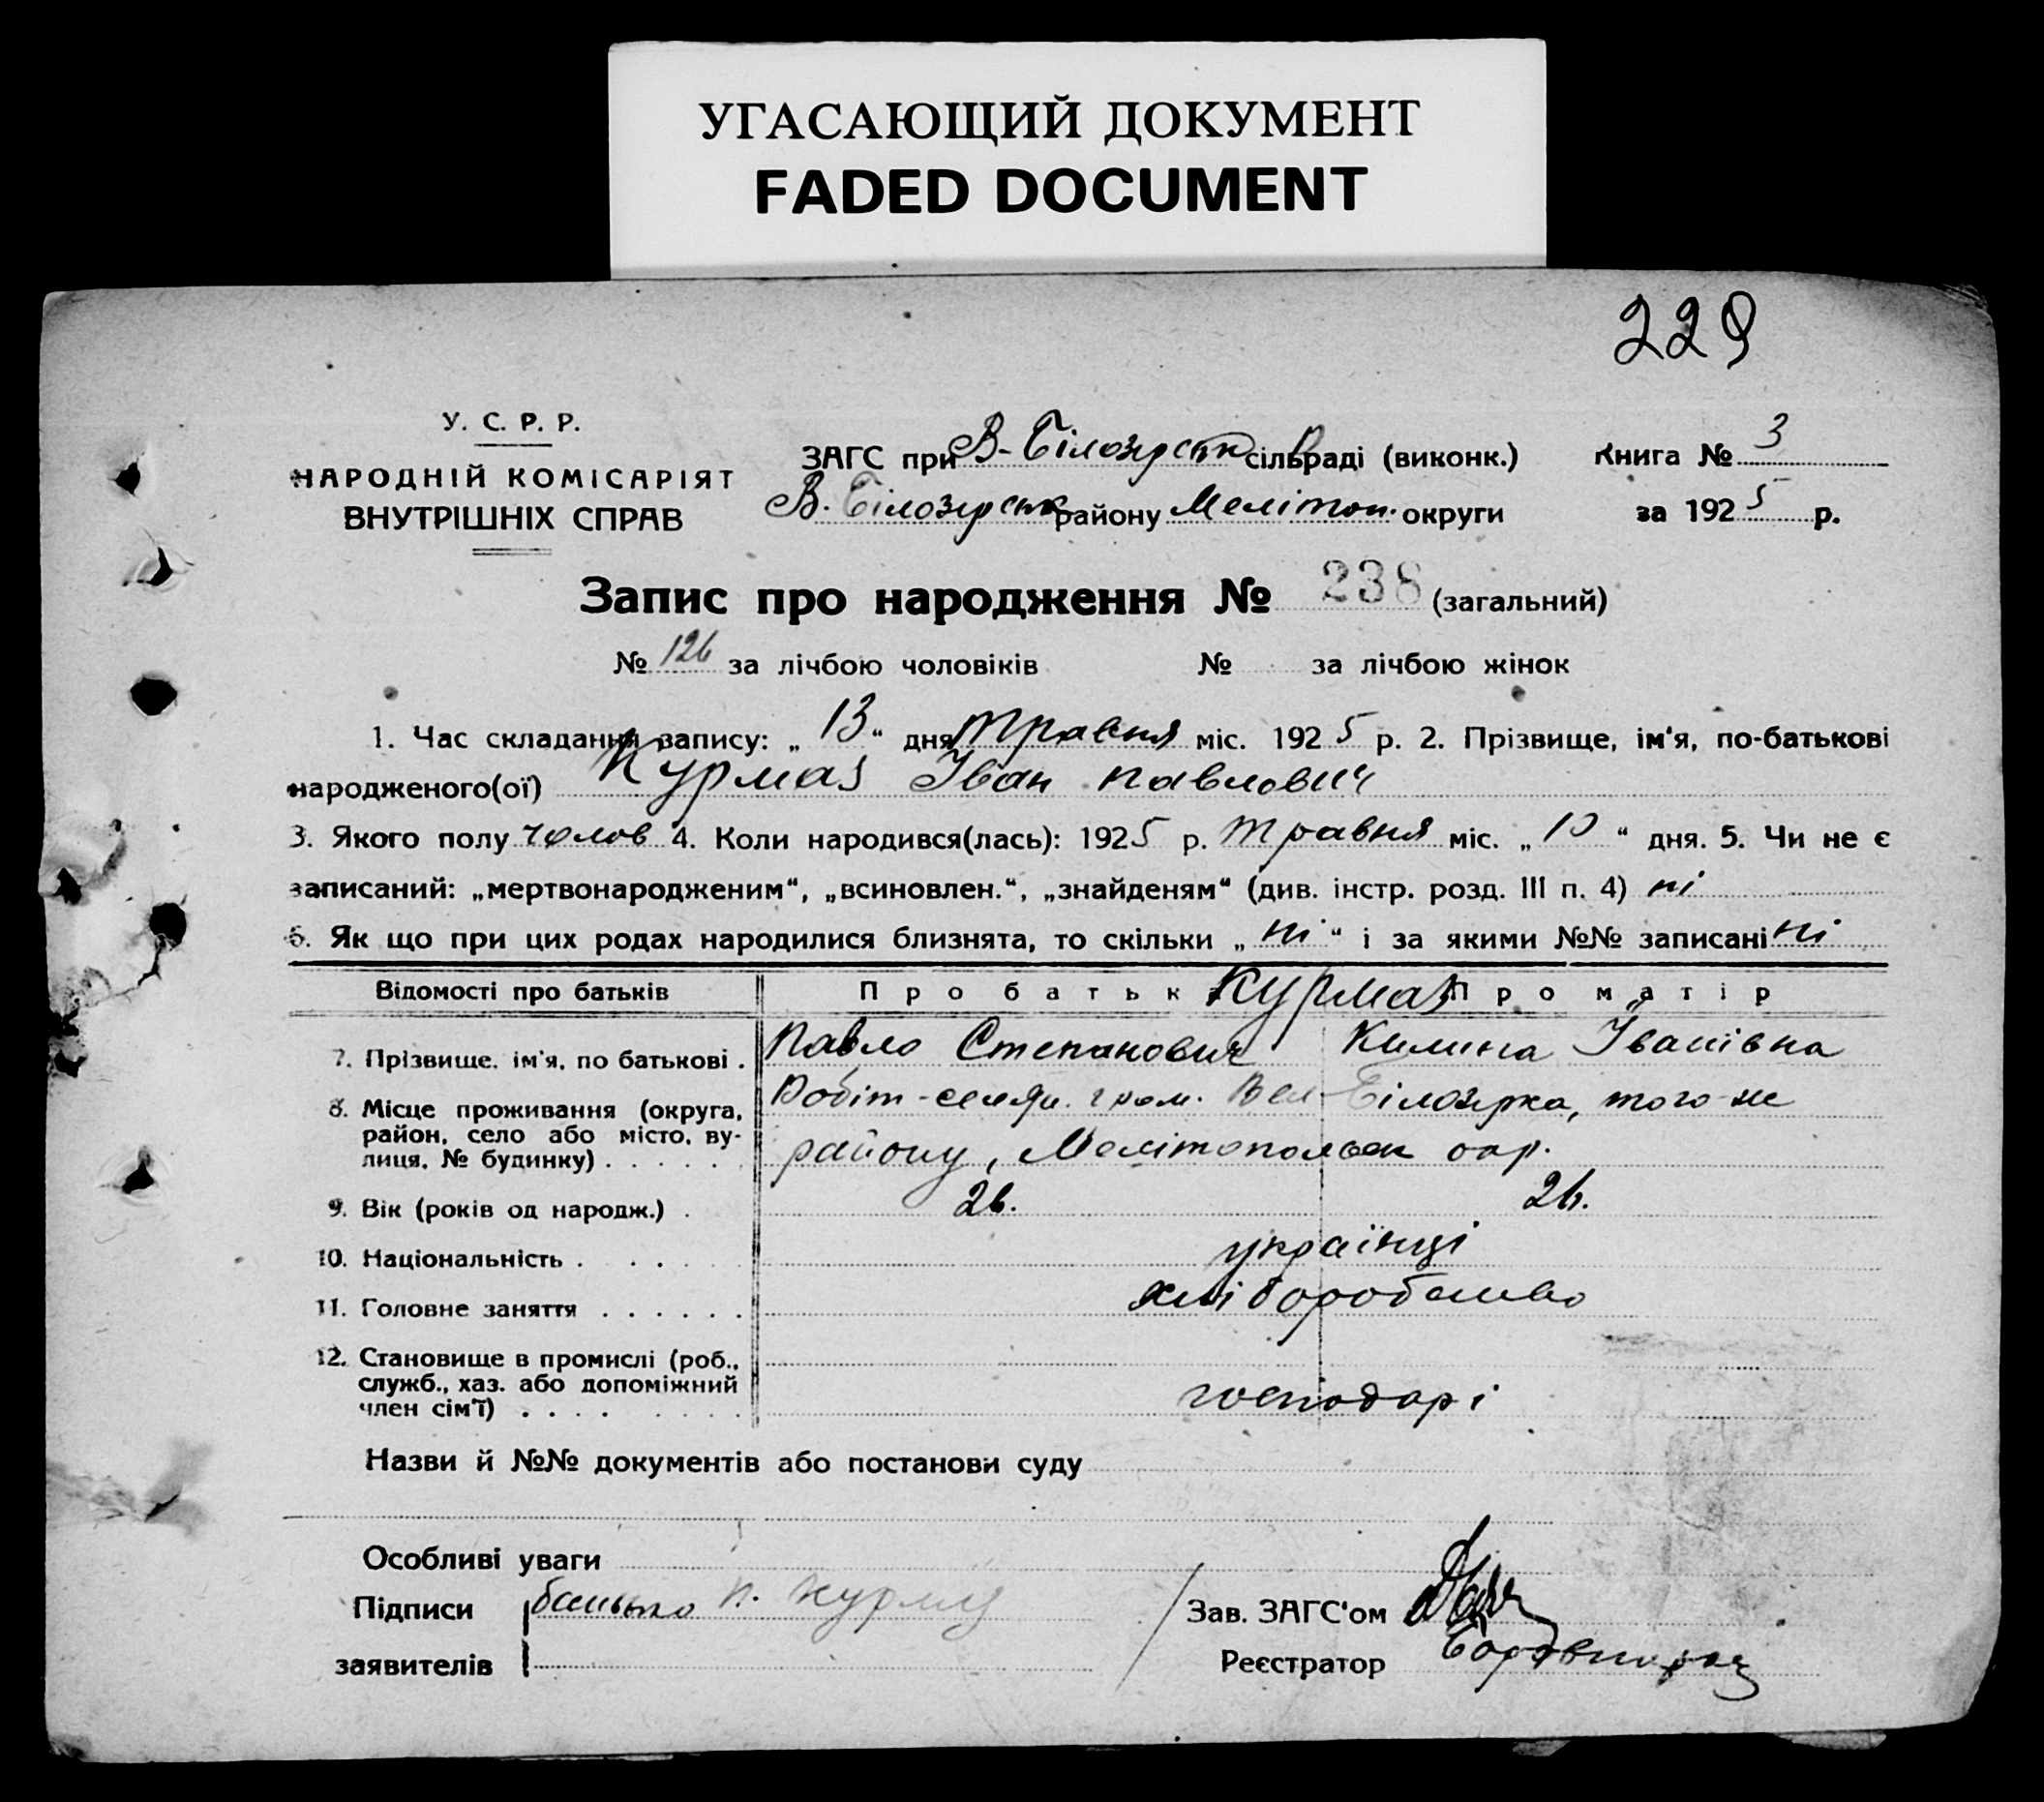 УГАСАЮЩИЙ ДОКУМЕНТ
FADED DOCUMENT
229
У. С. Р. Р.
НАРОДНІЙ КОМІСАРІЯТ
ВНУТРІШНІХ СПРАВ
ЗАГС при В-Білозірськ сільраді (виконк.)
Книга № 3
В. Білозірськ району Мелітоп. округи
за 1925 р.
Запис про народження № 238 (загальний)
№ 126 за лічбою чоловіків № за лічбою жінок
1. Час складання запису: „ 13 “ дня Травня міс. 1925 р. 2. Прізвище, ім'я, по-батькові
народженого(ої) Курмаз Іван Павлович
3. Якого полу чолов 4. Коли народився(лась): 1925 р. Травня міс. „ 10 “ дня. 5. Чи не є
записаний: „мертвонародженим“, „всиновлен.“, „знайденям“ (див. інстр. розд. III п. 4) ні
6. Як що при цих родах народилися близнята, то скільки „ ні “ і за якими №№ записані ні
Відомості про батьків Про батьк Курмаз Про матір
7. Прізвище, ім'я, по батькові . Павло Степанович Килина Іванівна
8. Місце проживання (округа, район, село або місто, вулиця, № будинку) . . . . .
Робіт-селян. гром. Вел-Білозірка, того-же
району, Мелітопольськ окр.
9. Вік (років од народж.) . 26. 26.
10. Національність . . . . . українці
11. Головне заняття . . . . . . хліборобство
12. Становище в промислі (роб., служб., хаз. або допоміжний член сім'ї) . . . . господарі
Назви й №№ документів або постанови суду
Особливі уваги
Підписи батько П. Курмаз
заявителів
Зав. ЗАГС'ом
Реєстратор